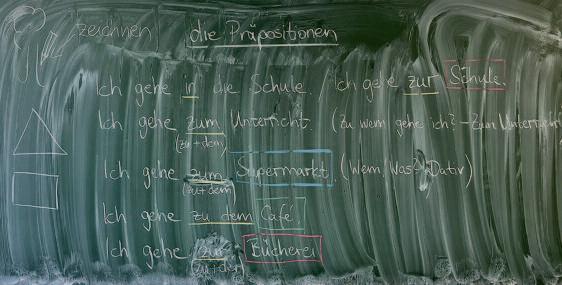 zeichnen die Präpositionen
Ich gehe in die Schule. Ich gehe zur Schule.
Ich gehe zum Unterricht. (Zu wem gehe ich? - Zum Unterricht
(zu+dem)
Ich gehe zum Supermarkt. (Wem/Was? Dativ)
(zu+dem)
Ich gehe zu dem Café.
Ich gehe zur Bücherei
(zu+der)